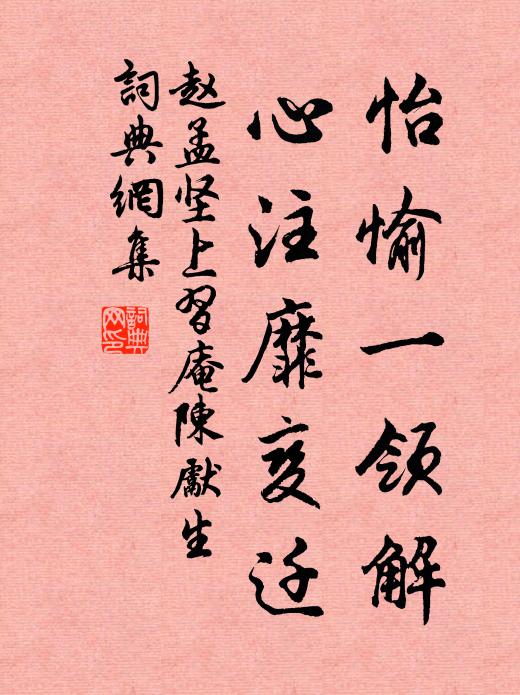 怡愉一领解
心注靡变迁
赵孟坚上习庵陈献生
詞典網集
詞典网印